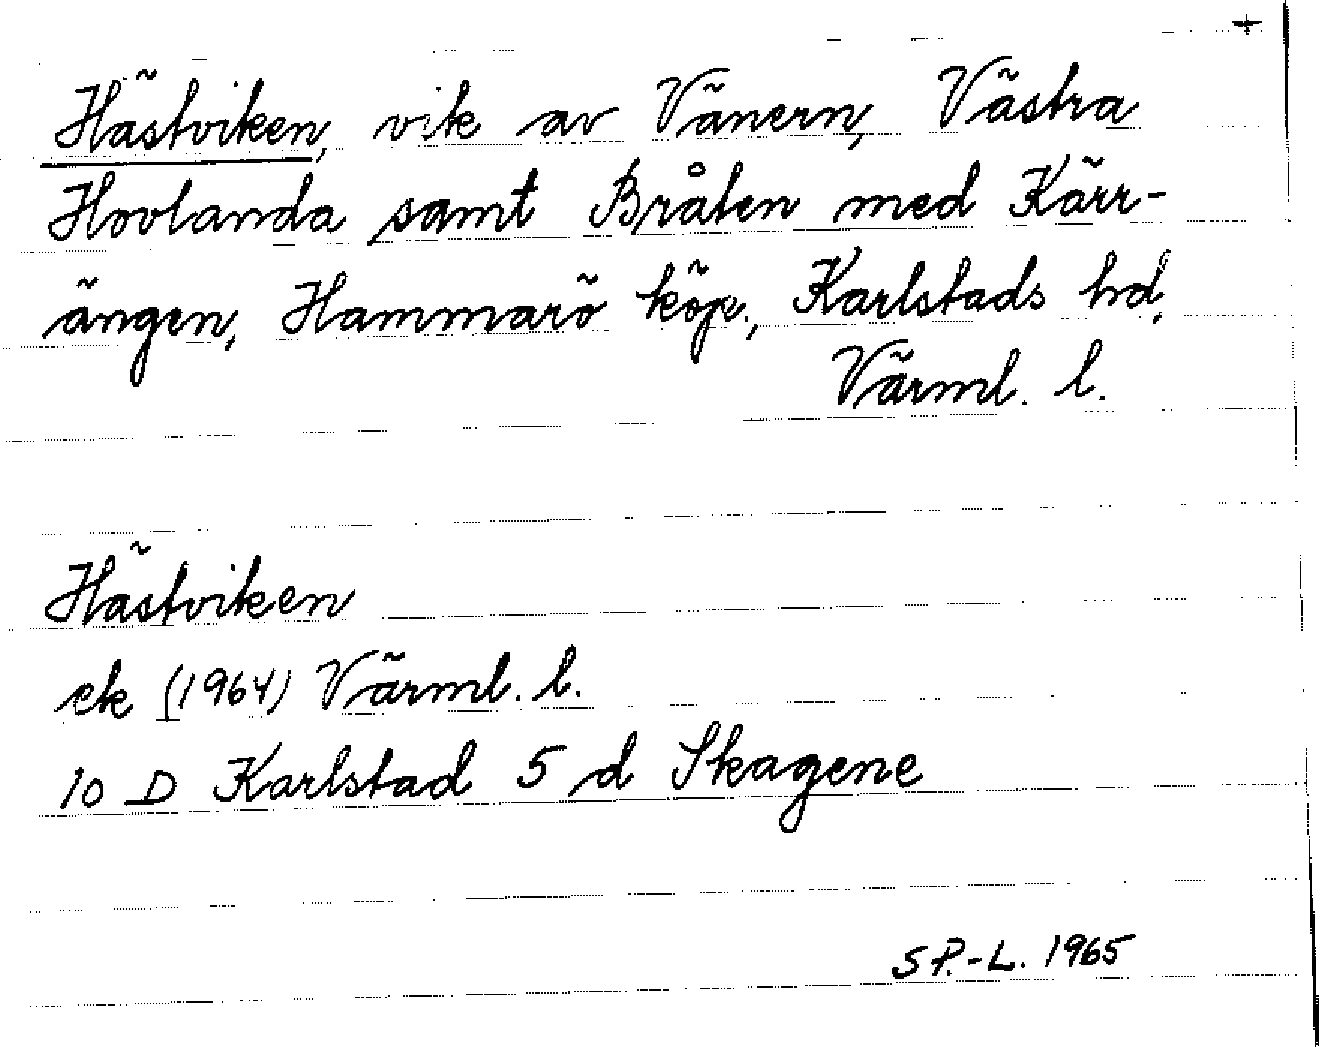 +
Hästviken, vik av Vänern, Västra
Hovlanda samt Bråten med Kärr-
ängen, Hammarö köp., Karlstads hd,
Värml. l.
Hästviken
ek (1964) Värml. l.
10 D Karlstad 5 d Skagene
S P.-L. 1965